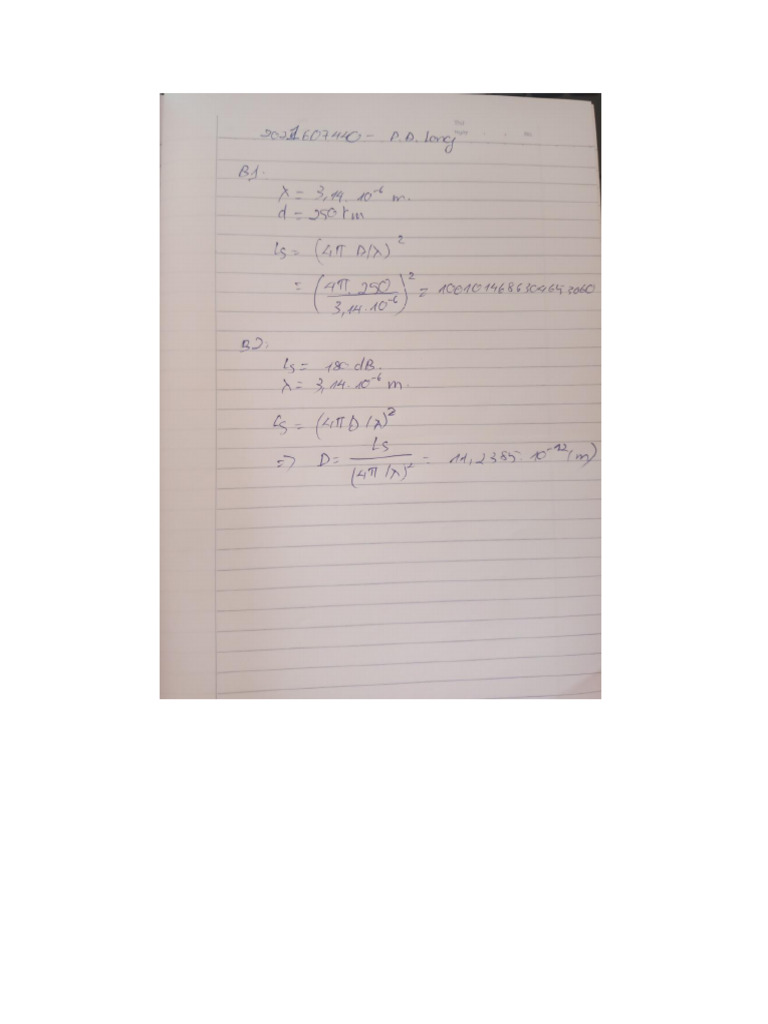 2021607440 - P.D. Long
B1:
λ = 3,14. 10⁻⁶ m.
d = 250 km
Ls = (4π D/λ)²
= (4π. 250 / 3,14.10⁻⁶)² =
B2:
Ls = 180 dB.
λ = 3,14.10⁻⁶ m.
Ls = (4πD/λ)²
=> D = Ls / (4π/λ)² = 11,2385. 10⁻¹² (m)